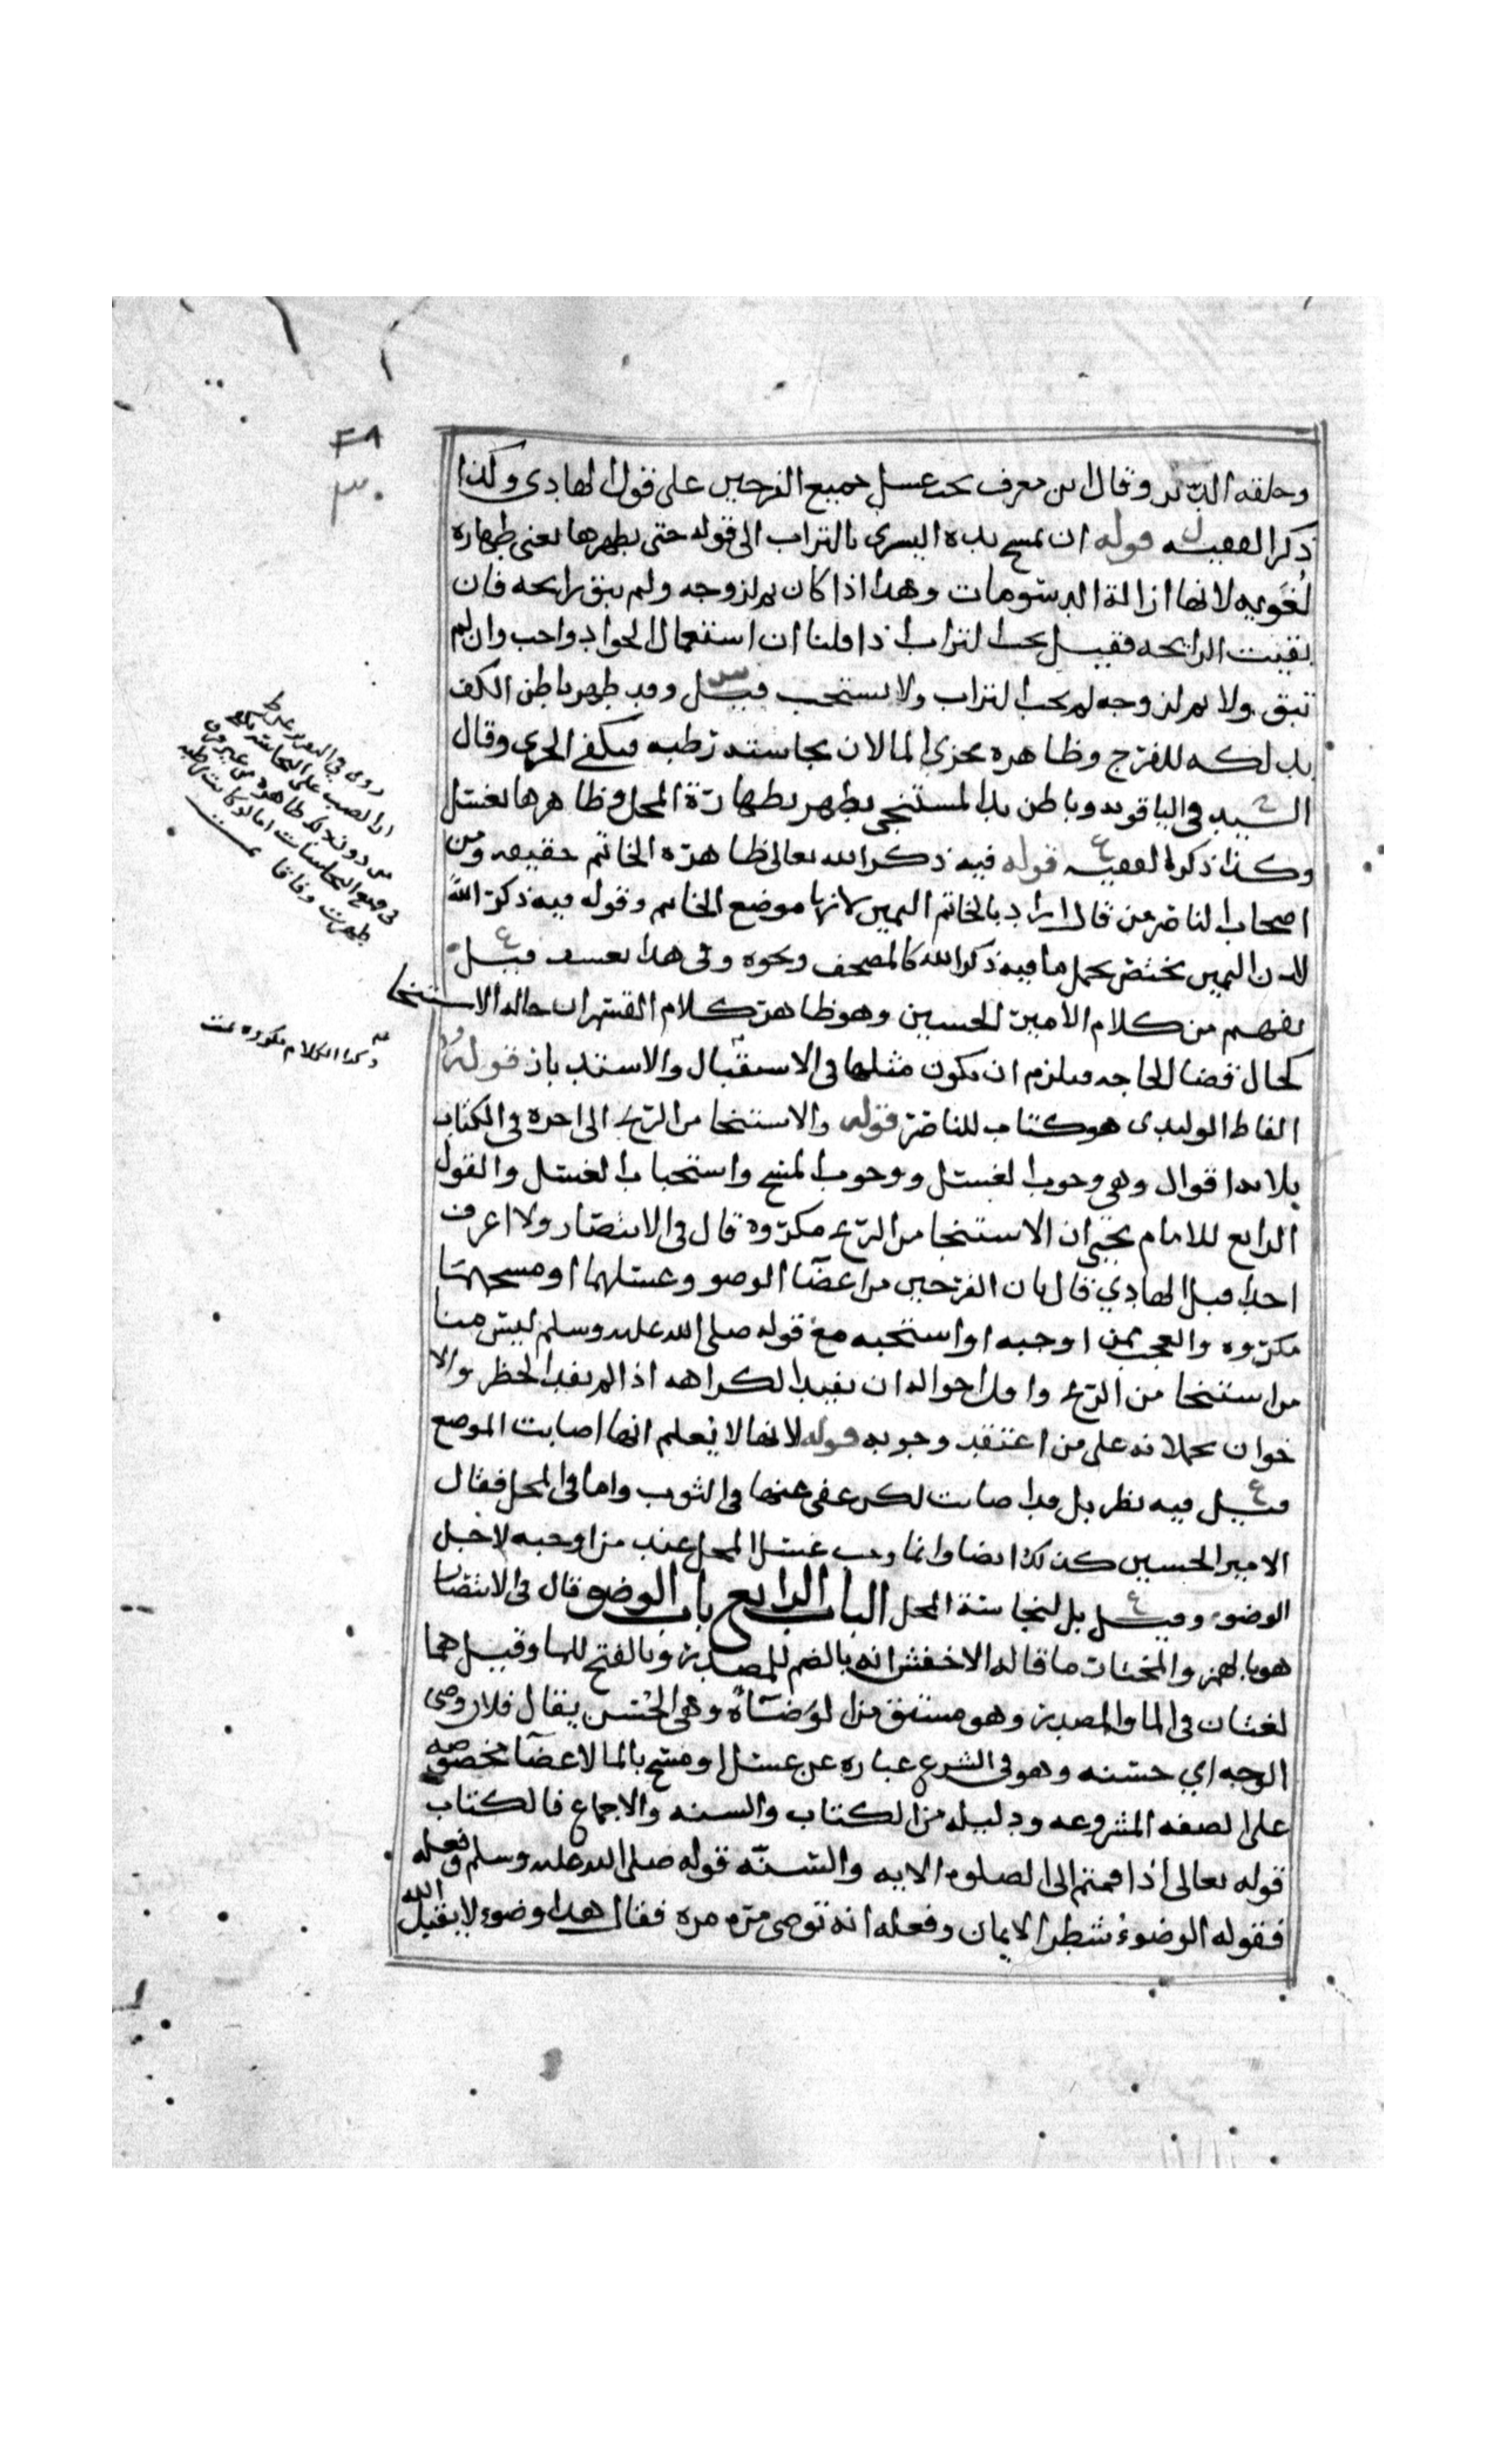 وحلقه الدبر وقال ابن معرف يجب غسل جميع الفرجين على قول الهادي وكذا
ذكر الفقيه ل قوله ان يمسح يده اليسرى بالتراب الى قوله حتى يطهرها يعني طهاره
لغويه لانها ازالة الدسومات وهذا اذا كان ثم لزوجه ولم يبق رايحه فان
بقيت الرايحه فقيل يجب التراب اذا قلنا ان استعمال الحواد واجب وان لم
تبق ولا ثم لزوجه لم يجب التراب ولا يستحب قيل س وقد طهر باطن الكف
بدلكه للفرج وظاهره يجزي الما لان نجاسته رطبه فيكفي الجري وقال
السيد ح في الياقوته وباطن يد المستنجي يطهر بطهارة المحل وظاهرها يغسل
وكذا ذكره الفقيه ع قوله فيه ذكر الله تعالى ظاهره الخاتم حقيقه ومن
اصحاب الناصر من قال اراد بالخاتم اليمين لانها موضع الخاتم وقوله فيه ذكر الله
لان اليمين يختص بحمل ما فيه ذكر الله كالمصحف ونحوه وفي هذا تعسف قيل ع
يفهم من كلام الامير الحسين وهو ظاهر كلام القسم ان حاله الاستنجا
كحال قضا الحاجه فيلزم ان يكون مثلها في الاستقبال والاستدبار قوله
الفاظ الوليدي هو كتاب للناصر قوله والاستنجا من الريح الى اخره في الكتاب
ثلاثه اقوال وهي وجوب الغسل ووجوب المسح واستحباب الغسل والقول
الرابع للامام يحيى ان الاستنجا من الريح مكروه قال في الانتصار ولا اعرف
احدا قبل الهادي قال بان الفرجين من اعضا الوضو وغسلهما او مسحهما
مكروه والعجب ممن اوجبه او استحبه مع قوله صلى الله عليه وسلم ليس منا
من استنجا من الريح واقل احواله ان يفيد الكراهه اذا لم يفد الحظر والا
خوان يحملانه على من اعتقد وجوبه قوله لانها لا يعلم انها اصابت الموضع
قيل ع فيه نظر بل قد اصابت لكن عفي عنها في الثوب واما في المحل فقال
الامير الحسين كذلك ايضا وانما وجب غسل المحل عند من اوجبه لاجل
الوضوء وقيل ع بل لنجاسة المحل الباب الرابع باب الوضو قال في الانتصار
هو بالهمز والمختار ما قاله الاخفش انه بالضم للمصدر وبالفتح للما وقيل هما
لغتان في الما والمصدر وهو مشتق من الوضاءة وهي الحسن يقال فلان وضي
الوجه اي حسنه وهو في الشرع عباره عن غسل او مسح بالما لاعضا مخصوصه
على الصفه المشروعه ودليله من الكتاب والسنه والاجماع فالكتاب
قوله تعالى اذا قمتم الى الصلوه الايه والسنه قوله صلى الله عليه وسلم وفعله
فقوله الوضوء شطر الايمان وفعله انه توضى مره مره فقال هذا وضوء لا يقبل الله